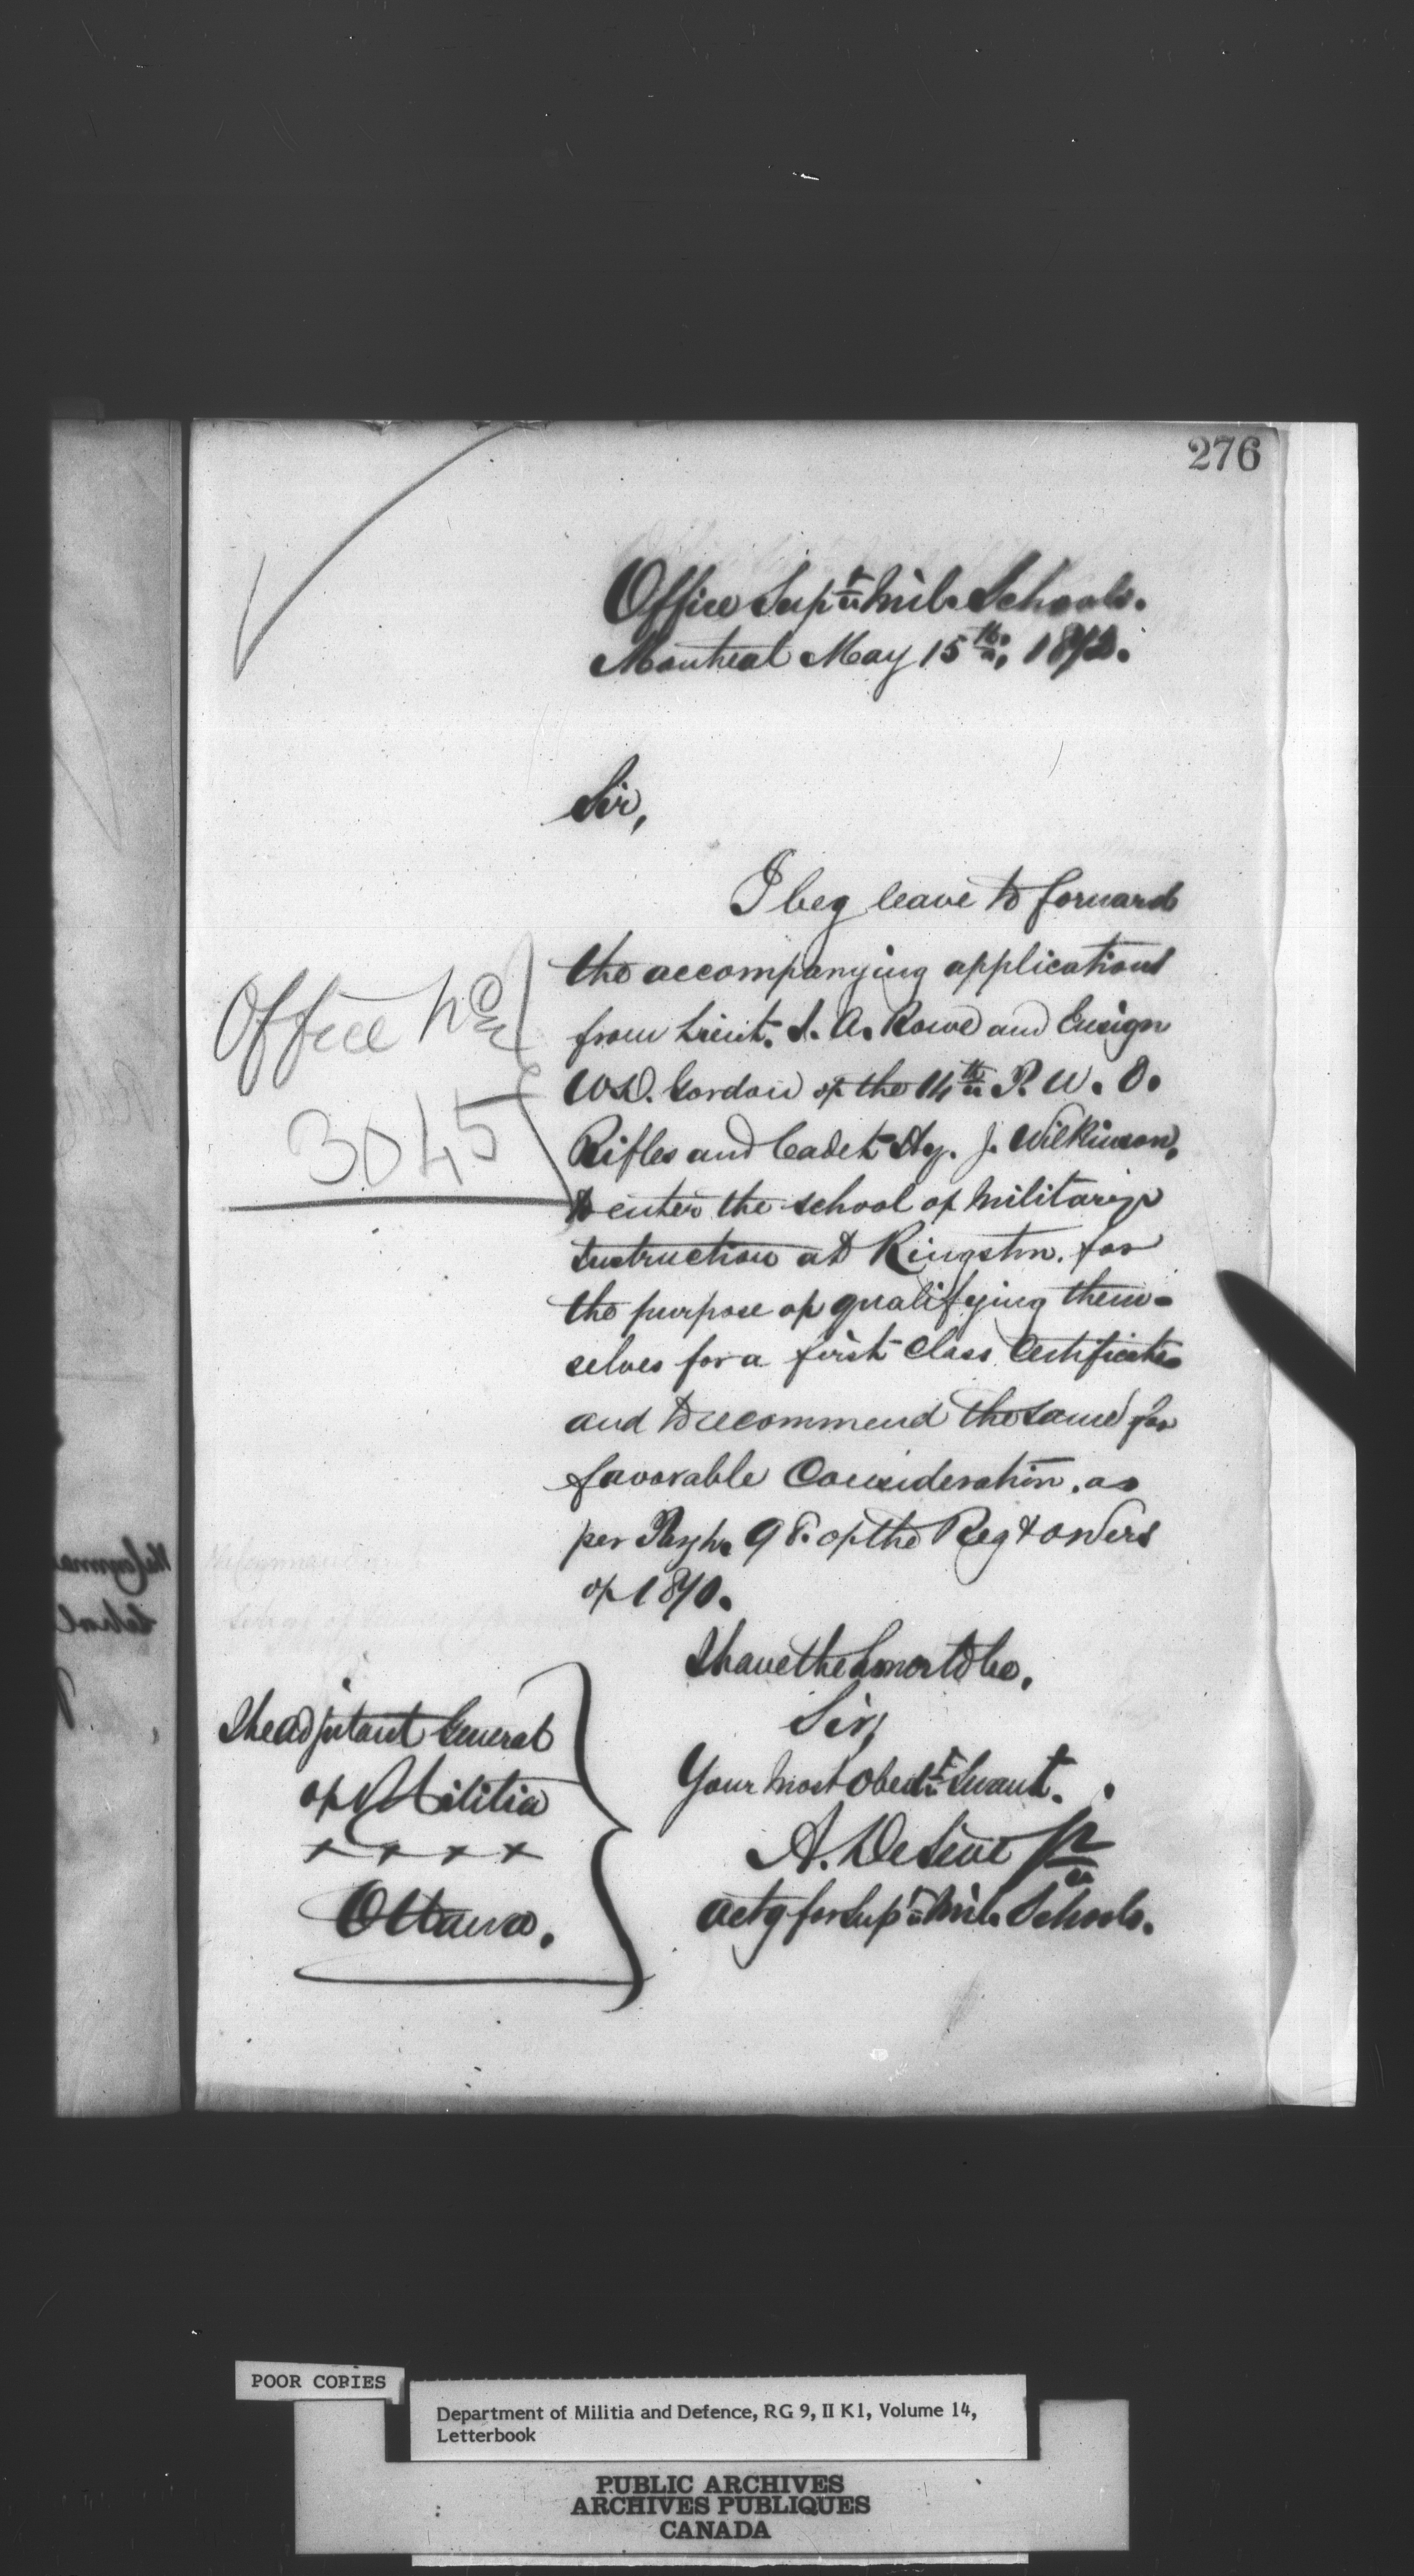 276
Office Supt Mil. Schools.
Montreal May 15th, 1872.
Sir,
I beg leave to forward
the accompanying applications
from Lieut. S. A. Rowe and Ensign
W.D. Gordon of the 14th P. W. O.
Rifles and Cadet Hy. J. Wilkinson,
to enter the school of Military
Instruction at Kingston. for
the purpose of qualifying them-
selves for a first Class Certificate
and to recommend the same for
favorable Consideration. as
per Pagh. 98. of the Reg & Orders
of 1870.
Office No
3045
I have the honor to be,
Sir,
Your most obedt Servant.
A. DeSeve
actg for Supt Mil. Schools.
The adjutant General
of Militia
x x x x
Ottawa.
POOR COPIES
Department of Militia and Defence, RG 9, II K1, Volume 14,
Letterbook
PUBLIC ARCHIVES
ARCHIVES PUBLIQUES
CANADA